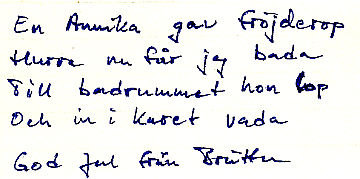 En Annika gav fröjderop
Hurra nu får jag bada
Till badrummet hon lop
Och in i karet vada
God jul från